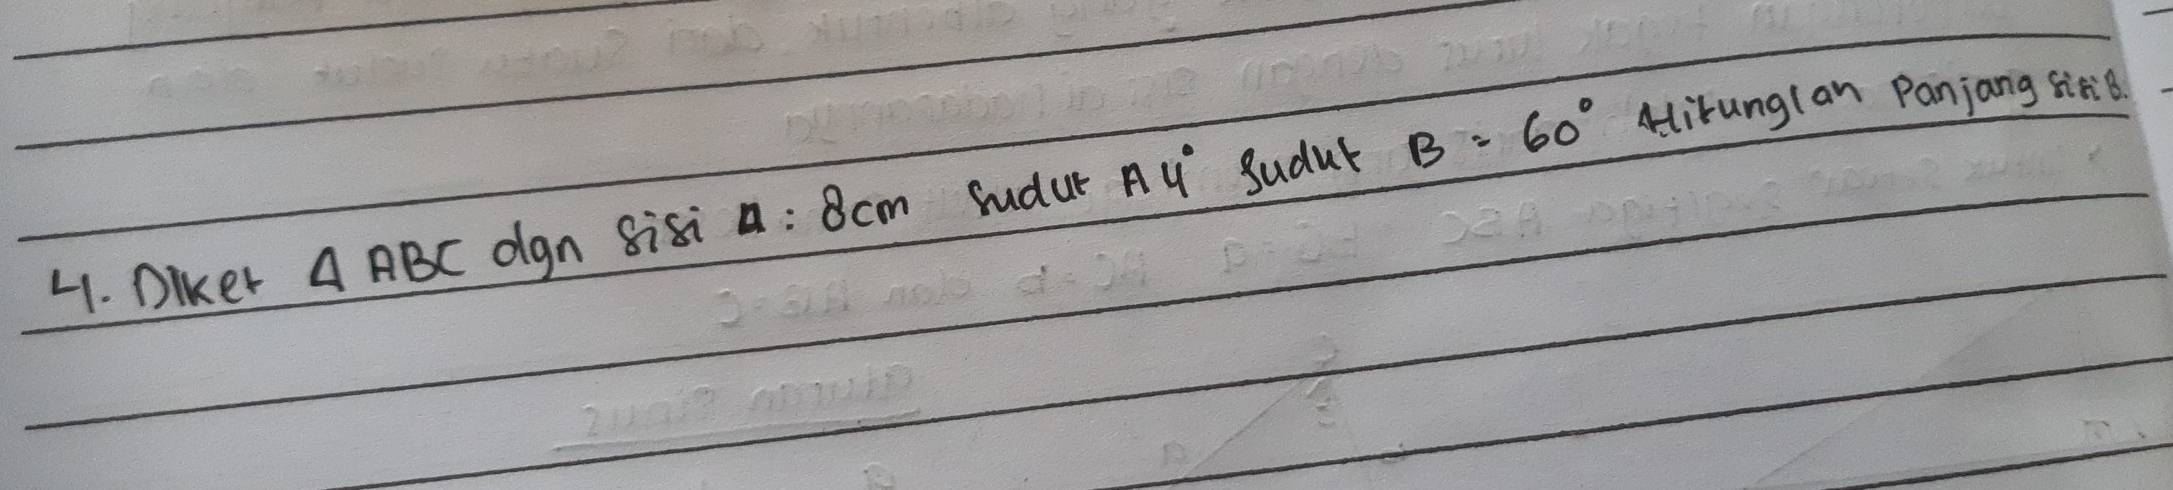 4. Diket Δ ABC dgn sisi a : 8cm sudut A 4° sudut B = 60° Hitunglan Panjang sisi B.